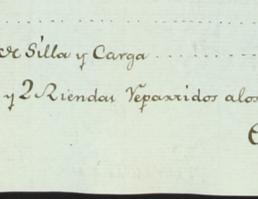 de Silla y Carga
y 2 Riendas Repartidos alos